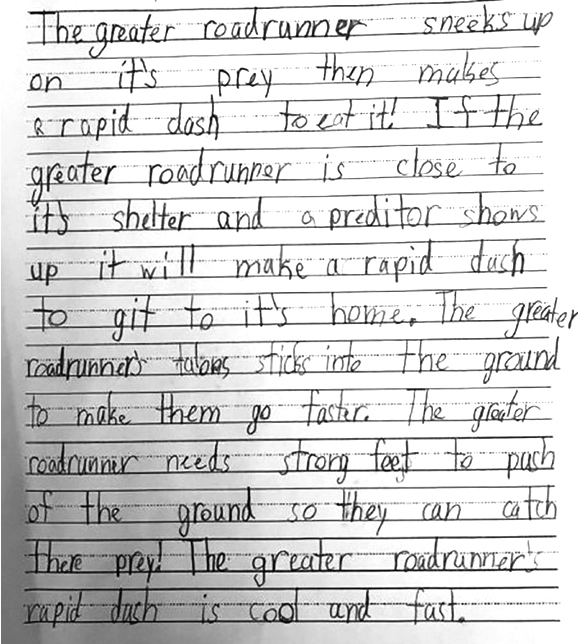 The greater roadrunner sneeks up
on it's prey then makes
a rapid dash to eat it! If the
greater roadrunner is close to
it's shelter and a preditor shows
up it will make a rapid dash
to git to it's home. The greater
roadrunner's talons sticks into the ground
to make them go faster. The greater
roadrunner needs strong feet to push
of the ground so they can catch
there prey! The greater roadrunner's
rapid dash is cool and fast.